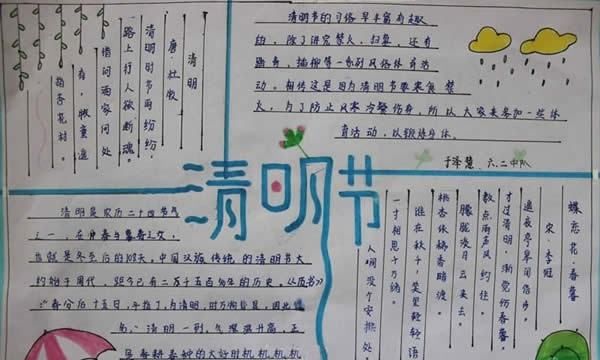 清明
唐·杜牧
清明时节雨纷纷,
路上行人欲断魂。
借问酒家何处
有,牧童遥
指杏花村。
清明节的习俗是丰富有趣
的,除了讲究禁火、扫墓,还有
踏青、插柳等一系列风俗体育活
动。相传这是因为清明节要寒食禁
火,为了防止风寒冷餐伤身,所以大家来参加一些体
育活动,以锻炼身体。
于泽慧 六.二中队
清明节
清明是农历二十四节气
之一,在仲春与暮春之交,
也就是冬至后的108天,中国汉族传统的清明节大
约始于周代,距今已有二千五百多年的历史,
春分后十五日,
清明一到,气温升高,正
是春耕春种的大好时机
蝶恋花·春暮
宋·李冠
遥夜亭皋闲信步,
才过清明,渐觉伤春暮。
数点雨声风约住,
朦胧淡月云来去。
桃杏依稀香暗渡,
谁在秋千,笑里轻轻语。
一寸相思千万绪,
人间没个安排处。